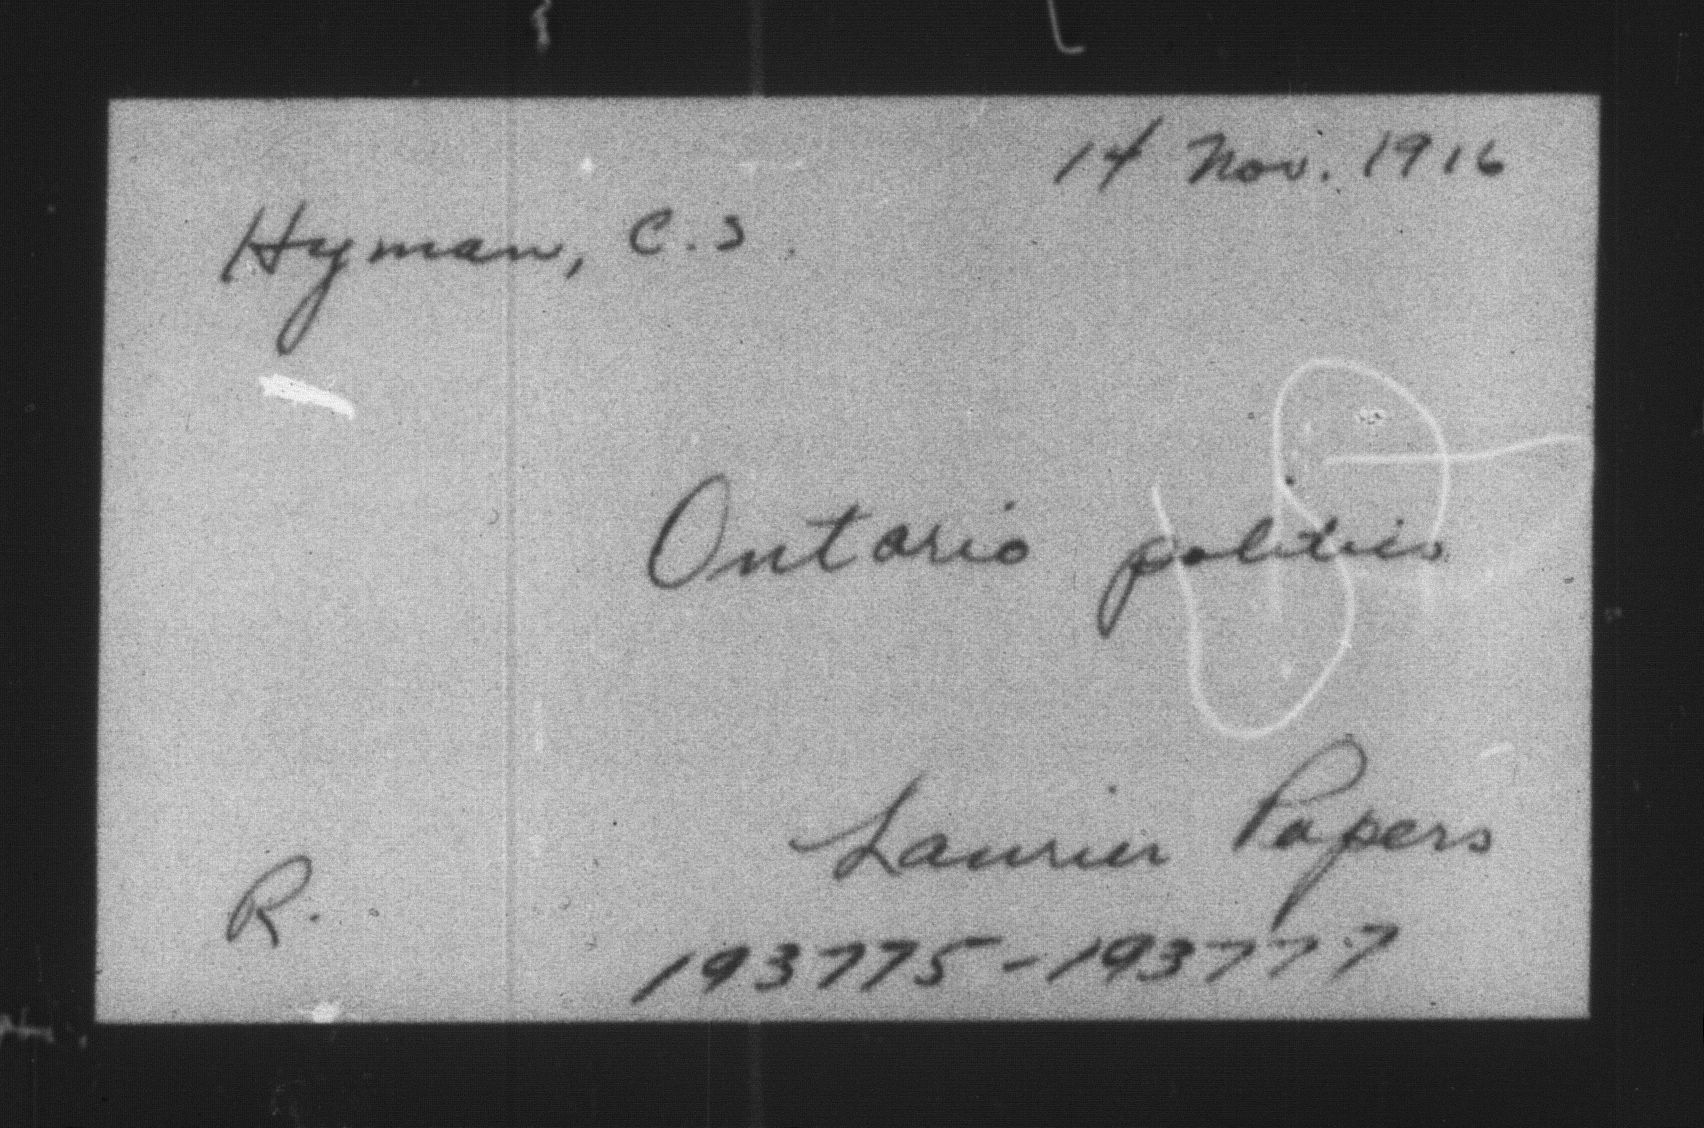 14 Nov. 1916
Hyman, C.S.
Ontario politics
Laurier Papers
R.
193775-193777